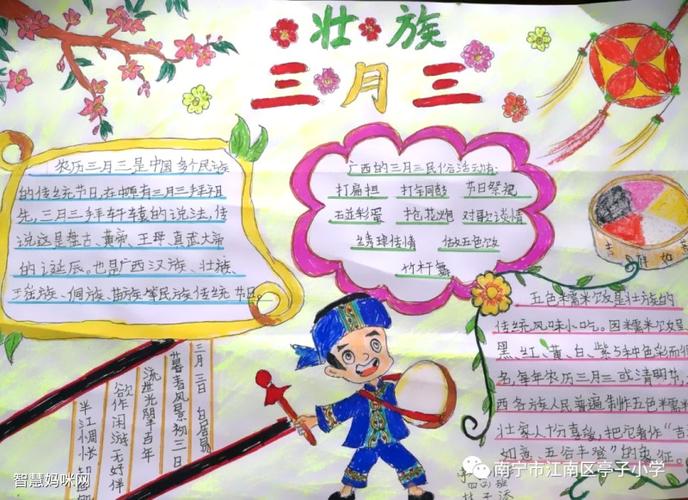 壮族
三月三
农历三月三是中国多个民族
的传统节日,在中原有三月三拜祖
先,三月三拜轩辕的说法,传
说这是盘古、黄帝、王母、真武大帝
的诞辰,也是广西汉族、壮族、
瑶族、侗族、苗族等民族传统节日。
广西的三月三民俗活动:
打扁担 打铜鼓 节日祭祝
碰彩蛋 抢花炮 对歌谈情
绣球传情 做五色饭
竹杆舞
吉 如意
五色糯米饭是壮族的
传统风味小吃。因糯米饭呈
黑、红、黄、白、紫5种色彩而得
名,每年农历三月三或清明节,
西各族人民普遍制作五色糯米
壮家人十分喜爱,把它看作“吉
如意、五谷丰登”的象征。
三月三日 白居易
暮春风景初三日
流世光阴半百年
欲作闲游无好伴
半江惆怅却
智慧妈咪网
南宁市江南区亭子小学